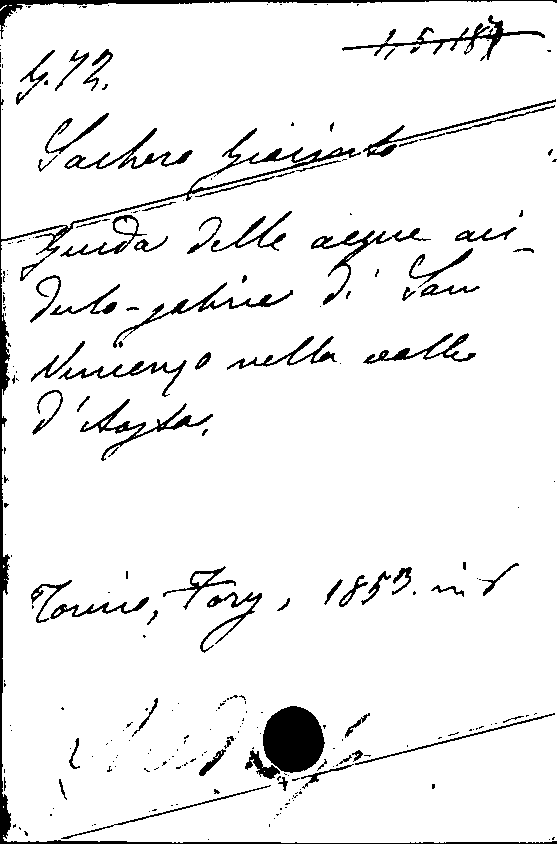 G.72.
1,5,187
Sachero Giacinto
Guida delle acque aci-
dulo-galine di San
Vincenzo nella valle
d'Aosta.
Torino, Fory, 1853. in 8